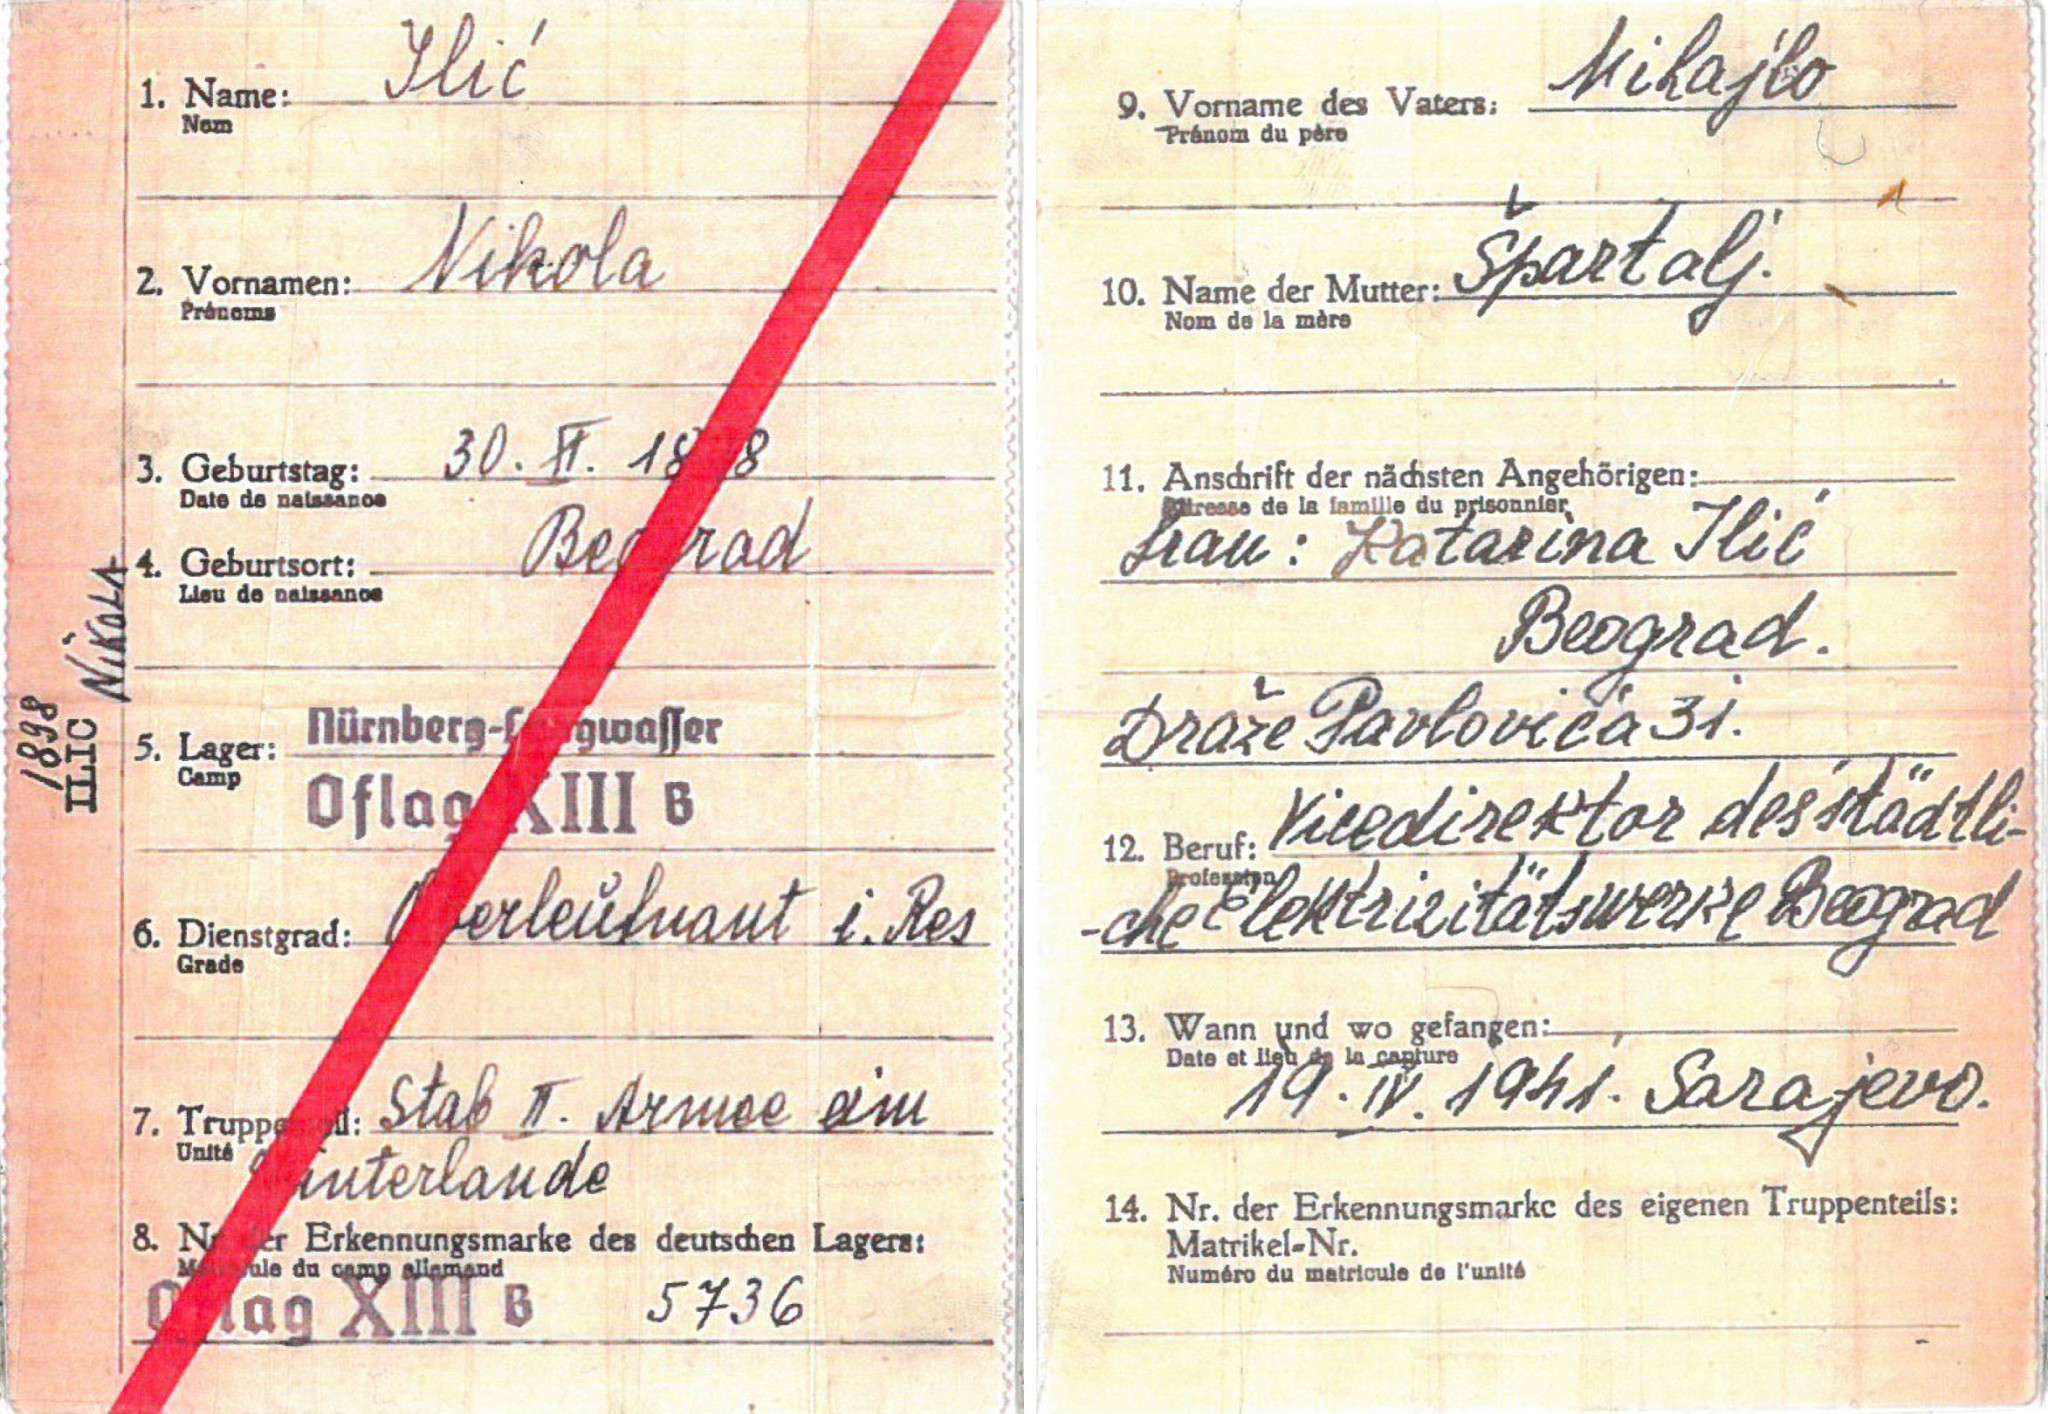 1. Name: Ilić
Nom
2. Vornamen: Nikola
Prénoms
3. Geburtstag: 30. II. 18 8
Date de naissance
4. Geburtsort: Beograd
Lieu de naissance
1898
ILIC NiKOLA
5. Lager: Nürnberg-Langwasser
Camp
Oflag XIII B
6. Dienstgrad: Oberleutnant i. Res
Grade
7. Truppenteil: Stab II. Armee
Unité
Hinterlande
8. Nr. der Erkennungsmarke des deutschen Lagers:
Matricule du camp allemand
Oflag XIII B 5736
9. Vorname des Vaters: Mihajlo
Prénom du père
10. Name der Mutter: Špartalj.
Nom de la mère
11. Anschrift der nächsten Angehörigen:
Adresse de la famille du prisonnier
Frau: Katarina Ilić
Beograd.
Draže Pavlovića 31.
12. Beruf: Vicedirektor des städtli-
Profession
-che Elektricitätswerke Beograd
13. Wann und wo gefangen:
Date et lieu de la capture
19. IV. 1941. Sarajevo.
14. Nr. der Erkennungsmarke des eigenen Truppenteils:
Matrikel-Nr.
Numéro du matricule de l'unité